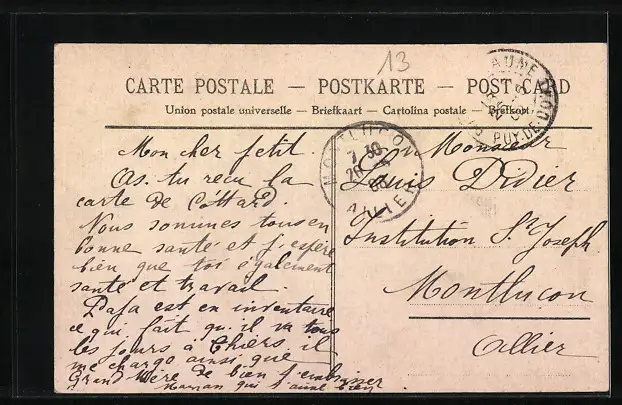 13
CARTE POSTALE — POSTKARTE — POST CARD
Union postale universelle — Briefkaart — Cartolina postale — Brefkort
Mon cher petit.
As. tu reçu la
carte de Cottard.
Nous sommes tous en
bonne santé et j'espère
bien que toi également
santé et travail.
Papa est en inventaire
ce qui fait qu'il va tous
les jours à Thiers. il
me charge ainsi que
Grand Mère de bien t'embrasser
Maman qui t'aime bien
Monsieur
Louis Didier
Institution St Joseph
Montluçon
Allier
MONTLUCON
7 30
26
ALLIER
PUY-DE-DOME